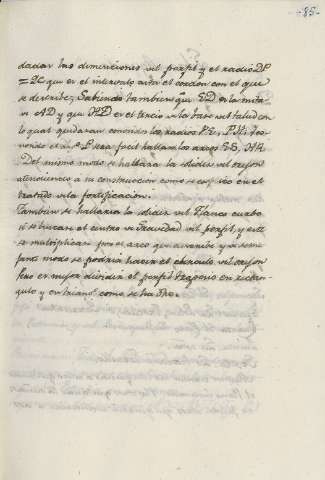 -85-
dadas las dimensiones del perfil y el radio DP
= 2C que es el intervalo asta el cordon con el que
se describe; Sabiendo tambien que ED es la mita
de AD y que HD es el tercio de la base del talud con
lo qual quedaran conocidos los radios PE, PH, po
el P sera facil hallar los arcos
Del mismo modo se hallara la solidez del orejon
atendiendo a su construccion como se explico en el
tratado de la fortificacion.
Tambien se hallaria la solidez del flanco curbo
si se buscase el centro de gravedad del perfil, y este
se multiplicase por el arco que describe y de seme
jante modo se podria hacer el calculo del orejon
pero es mejor dividir el perfil trapecio en rectan-
gulo y en triangl como se ha dho.